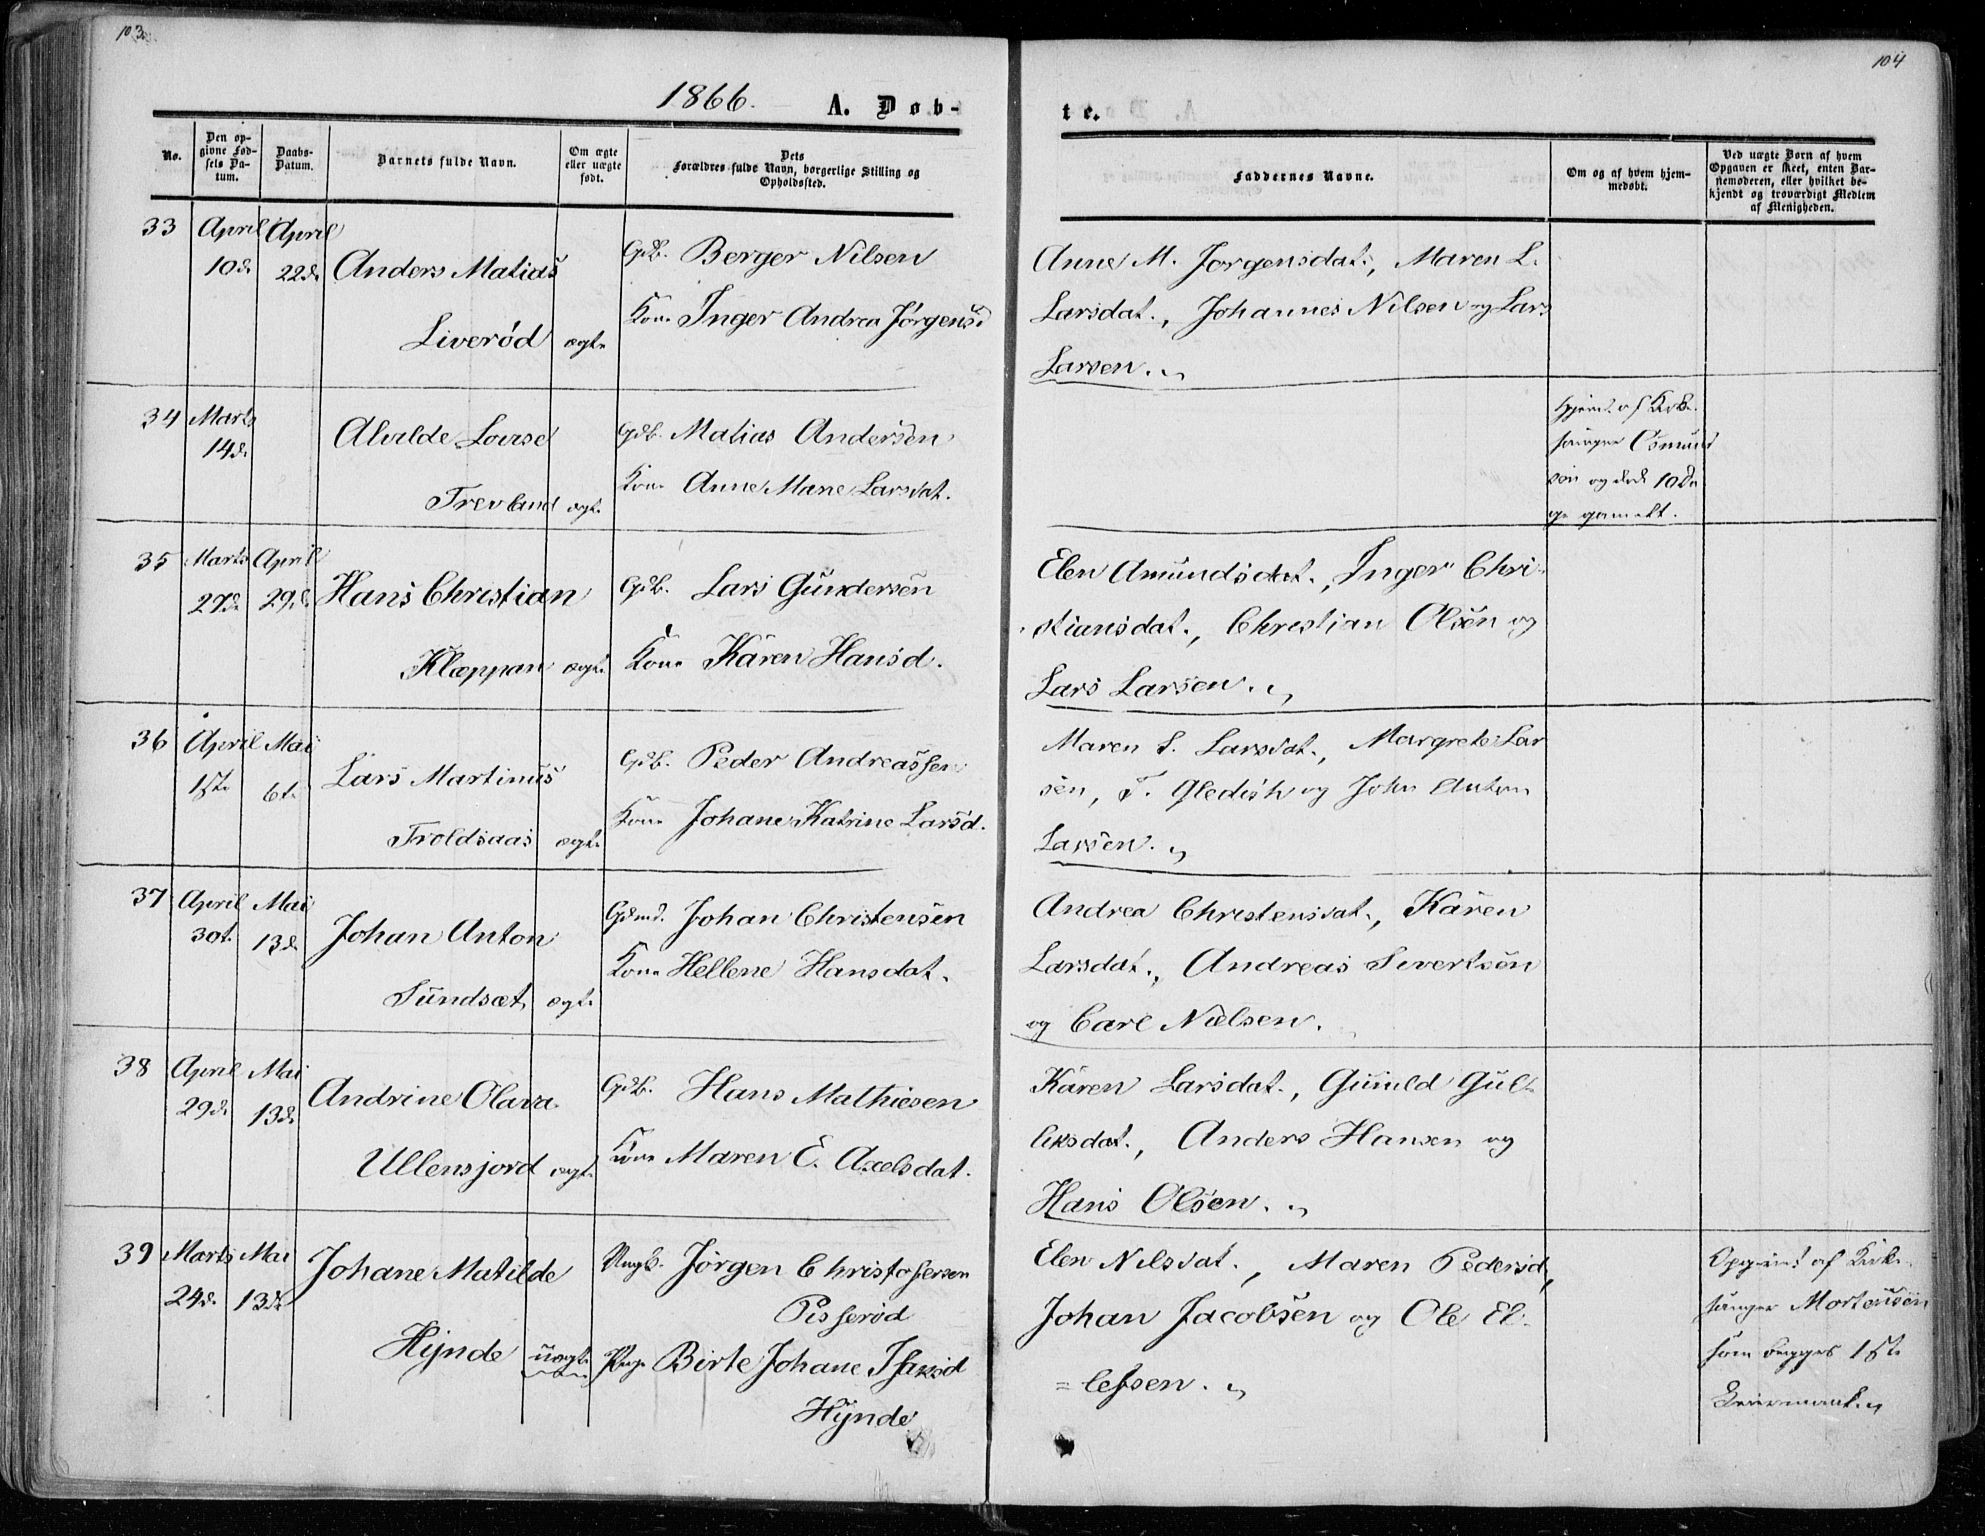 103.
104
1866. A. Døb-
te.
No.
Den op-
givne Fød-
sels Da-
tum.
Daabs-
Datum.
Barnets fulde Navn.
Om ægte
eller uægte
født.
Dets
Forældres fulde Navn, borgerlige Stilling og
Opholdssted.
Faddernes Navne.
Om og af hvem hjem-
medøbt.
Ved uægte Børn af hvem
Opgaven er skeet, enten Bar-
nemoderen, eller hvilket be-
kjendt og troværdigt Medlem
af Menigheden.
33 April April
10d. 22d. Anders Matias
Liverød ægt.
Gdb. Berger Nilsen
Kone Inger Andrea Jørgensd
Anne M. Jørgensdat., Maren L.
Larsdat., Johannes Nilsen og Lars
Larsen.
34 Marts
14d. Alvilde Lovise
Trevland ægt.
Gdb. Matias Andersen
Kone Anne Marie Larsdat.
Hjemd. af Kirke-
sanger Osmund
sen og død 10 Da
ge gamelt.
35 Marts April
27d. 29d. Hans Christian
Klæppan ægt.
Gdb. Lars Gundersen
Kone Karen Hansd.
Elen Amundsdat., Inger Chri-
stiansdat., Christian Olsen og
Lars Larsen.
36 April Mai
1ste 6t. Lars Martinus
Troldsaas ægt.
Gdb. Peder Andreassen
Kone Johane Katrine Larsd.
Maren S. Larsdat., Margrete Lar
sen, T. Gledish og John Anton
Larsen.
37 April Mai
30t. 13d. Johan Anton
Sundsæt ægt.
Gdmd. Johan Christensen
Kone Hellene Hansdat.
Andrea Christensdat., Karen
Larsdat., Andreas Sivertsen
og Carl Nielsen.
38 April Mai
29d. 13d. Andrine Olava
Ullensjord ægt.
Gdb. Hans Mathiesen
Kone Maren E. Axelsdat.
Karen Larsdat., Gunild Gul-
liksdat., Anders Hansen og
Hans Olsen.
39 Marts Mai
24d. 13d. Johane Matilde
Hynde uægt.
Ungk. Jørgen Christofersen
Pisserød
Pige Birte Johane Isaksd
Hynde
Elen Nilsdat., Maren Pedersd,
Johan Jacobsen og Ole El-
=lefsen.
Opgivet af Kirke-
sanger Mortensen
som begges 1ste
Leiermaal.